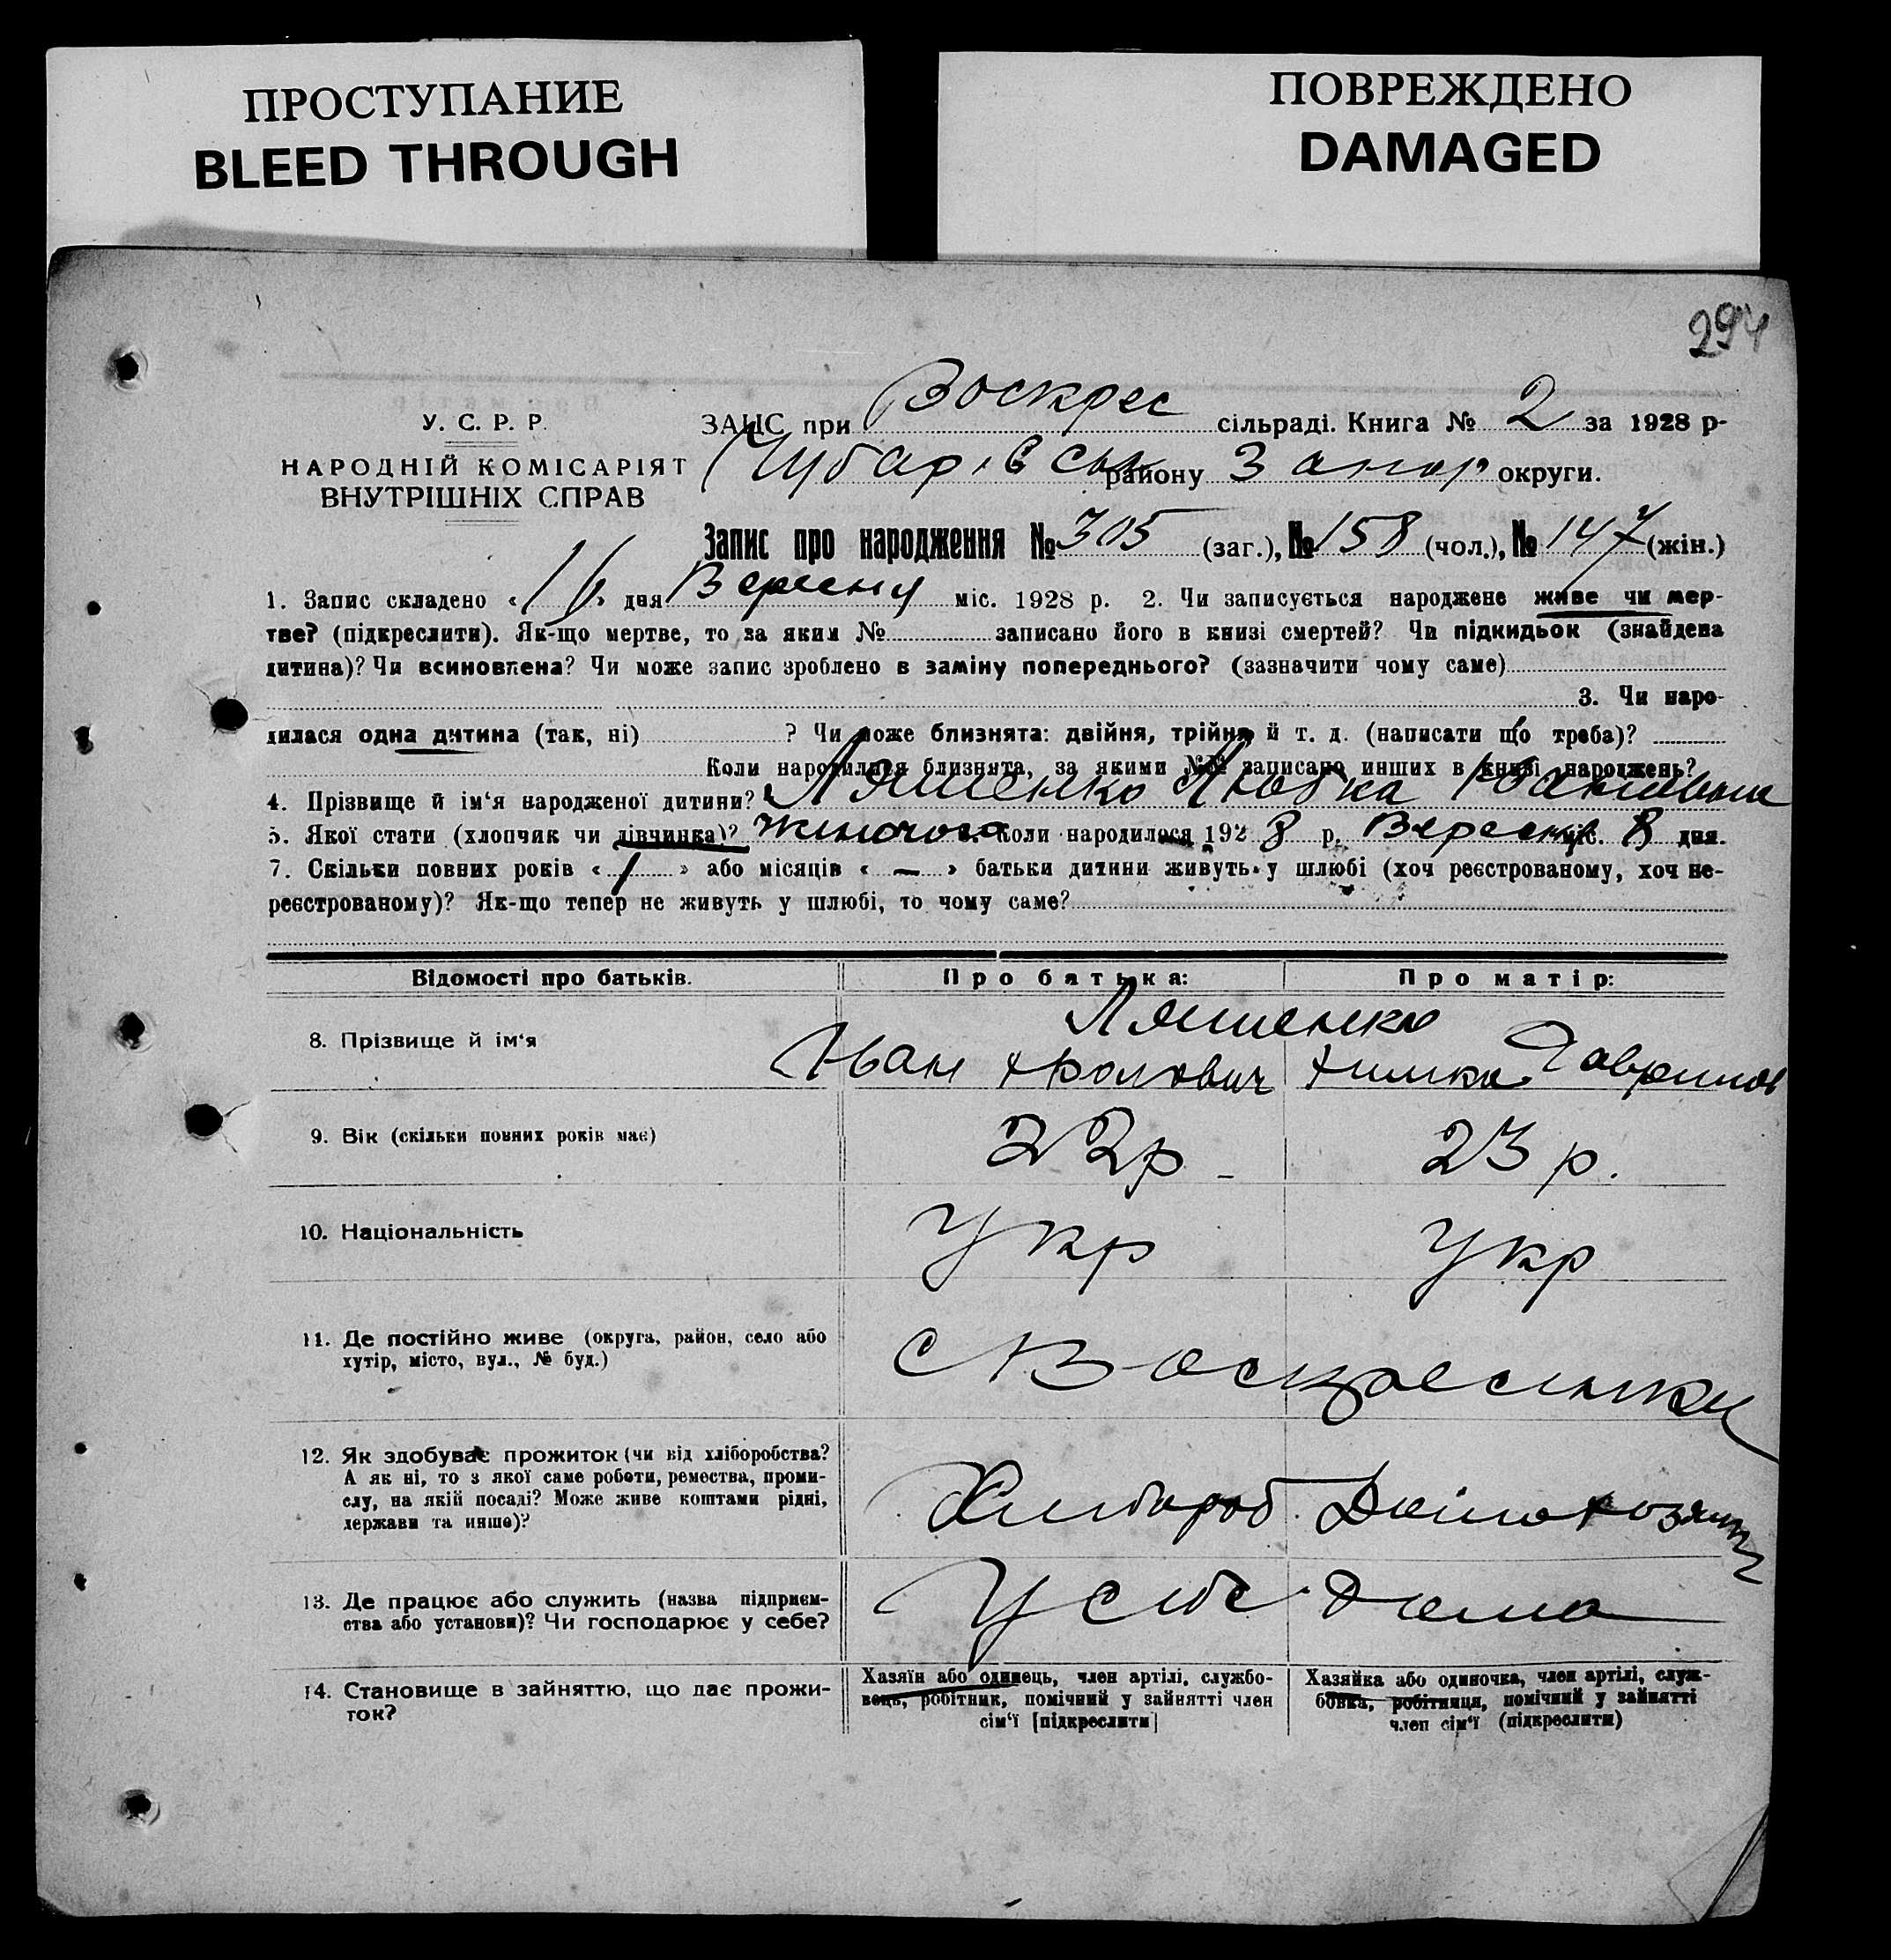 ПРОСТУПАНИЕ
BLEED THROUGH
ПОВРЕЖДЕНО
DAMAGED
294
У. С. Р. Р.
НАРОДНІЙ КОМІСАРІЯТ
ВНУТРІШНІХ СПРАВ
ЗАГС при Воскрес сільраді. Книга № 2 за 1928 р-
Чубарівськ району Запор округи.
Запис про народження № 305 (заг.), № 158 (чол.), № 147 (жін.)
1. Запис складено « 16 » дня Вересня міс. 1928 р. 2. Чи записується народжене живе чи мер-
тве? (підкреслити). Як-що мертве, то за яким № записано його в книзі смертей? Чи підкидьок (знайдена
дитина)? Чи всиновлена? Чи може запис зроблено в заміну попереднього? (зазначити чому саме)
3. Чи наро-
дилася одна дитина (так, ні) ? Чи може близнята: двійня, трійня й т. д. (написати що треба)?
Коли народилися близнята, за якими №№ записано инших в книзі народжень?
4. Прізвище й ім‘я народженої дитини? Ляшенко Любка Івановна
5. Якої стати (хлопчик чи дівчинка)? Жіночого Коли народилося 1928 р. Вересня міс. 8 дня.
7. Скільки повних років « 1 » або місяців « — » батьки дитини живуть у шлюбі (хоч реєстрованому, хоч не-
реєстрованому)? Як-що тепер не живуть у шлюбі, то чому саме?
Відомості про батьків. Про батька: Про матір:
Ляшенко
8. Прізвище й ім‘я Іван Фролович
9. Вік (скільки повних років має) 22р 23 р.
10. Національність Укр Укр
11. Де постійно живе (округа, район, село або
хутір, місто, вул., № буд.)
С Воскресенки
12. Як здобуває прожиток (чи від хліборобства?
А як ні, то з якої саме роботи, ремества, проми-
слу, на якій посаді? Може живе коштами рідні,
держави та инше)?
Хлібороб
13. Де працює або служить (назва підприєм-
ства або установи)? Чи господарює у себе?
У себе Дома
14. Становище в зайняттю, що дає прожи-
ток?
Хазяїн або одинець, член артілі, службо-
вець, робітник, помічний у зайнятті член
сім‘ї [підкреслити]
Хазяйка або одиночка, член артілі, служ-
бовка, робітниця, помічний у зайнятті
член сім‘ї (підкреслити)